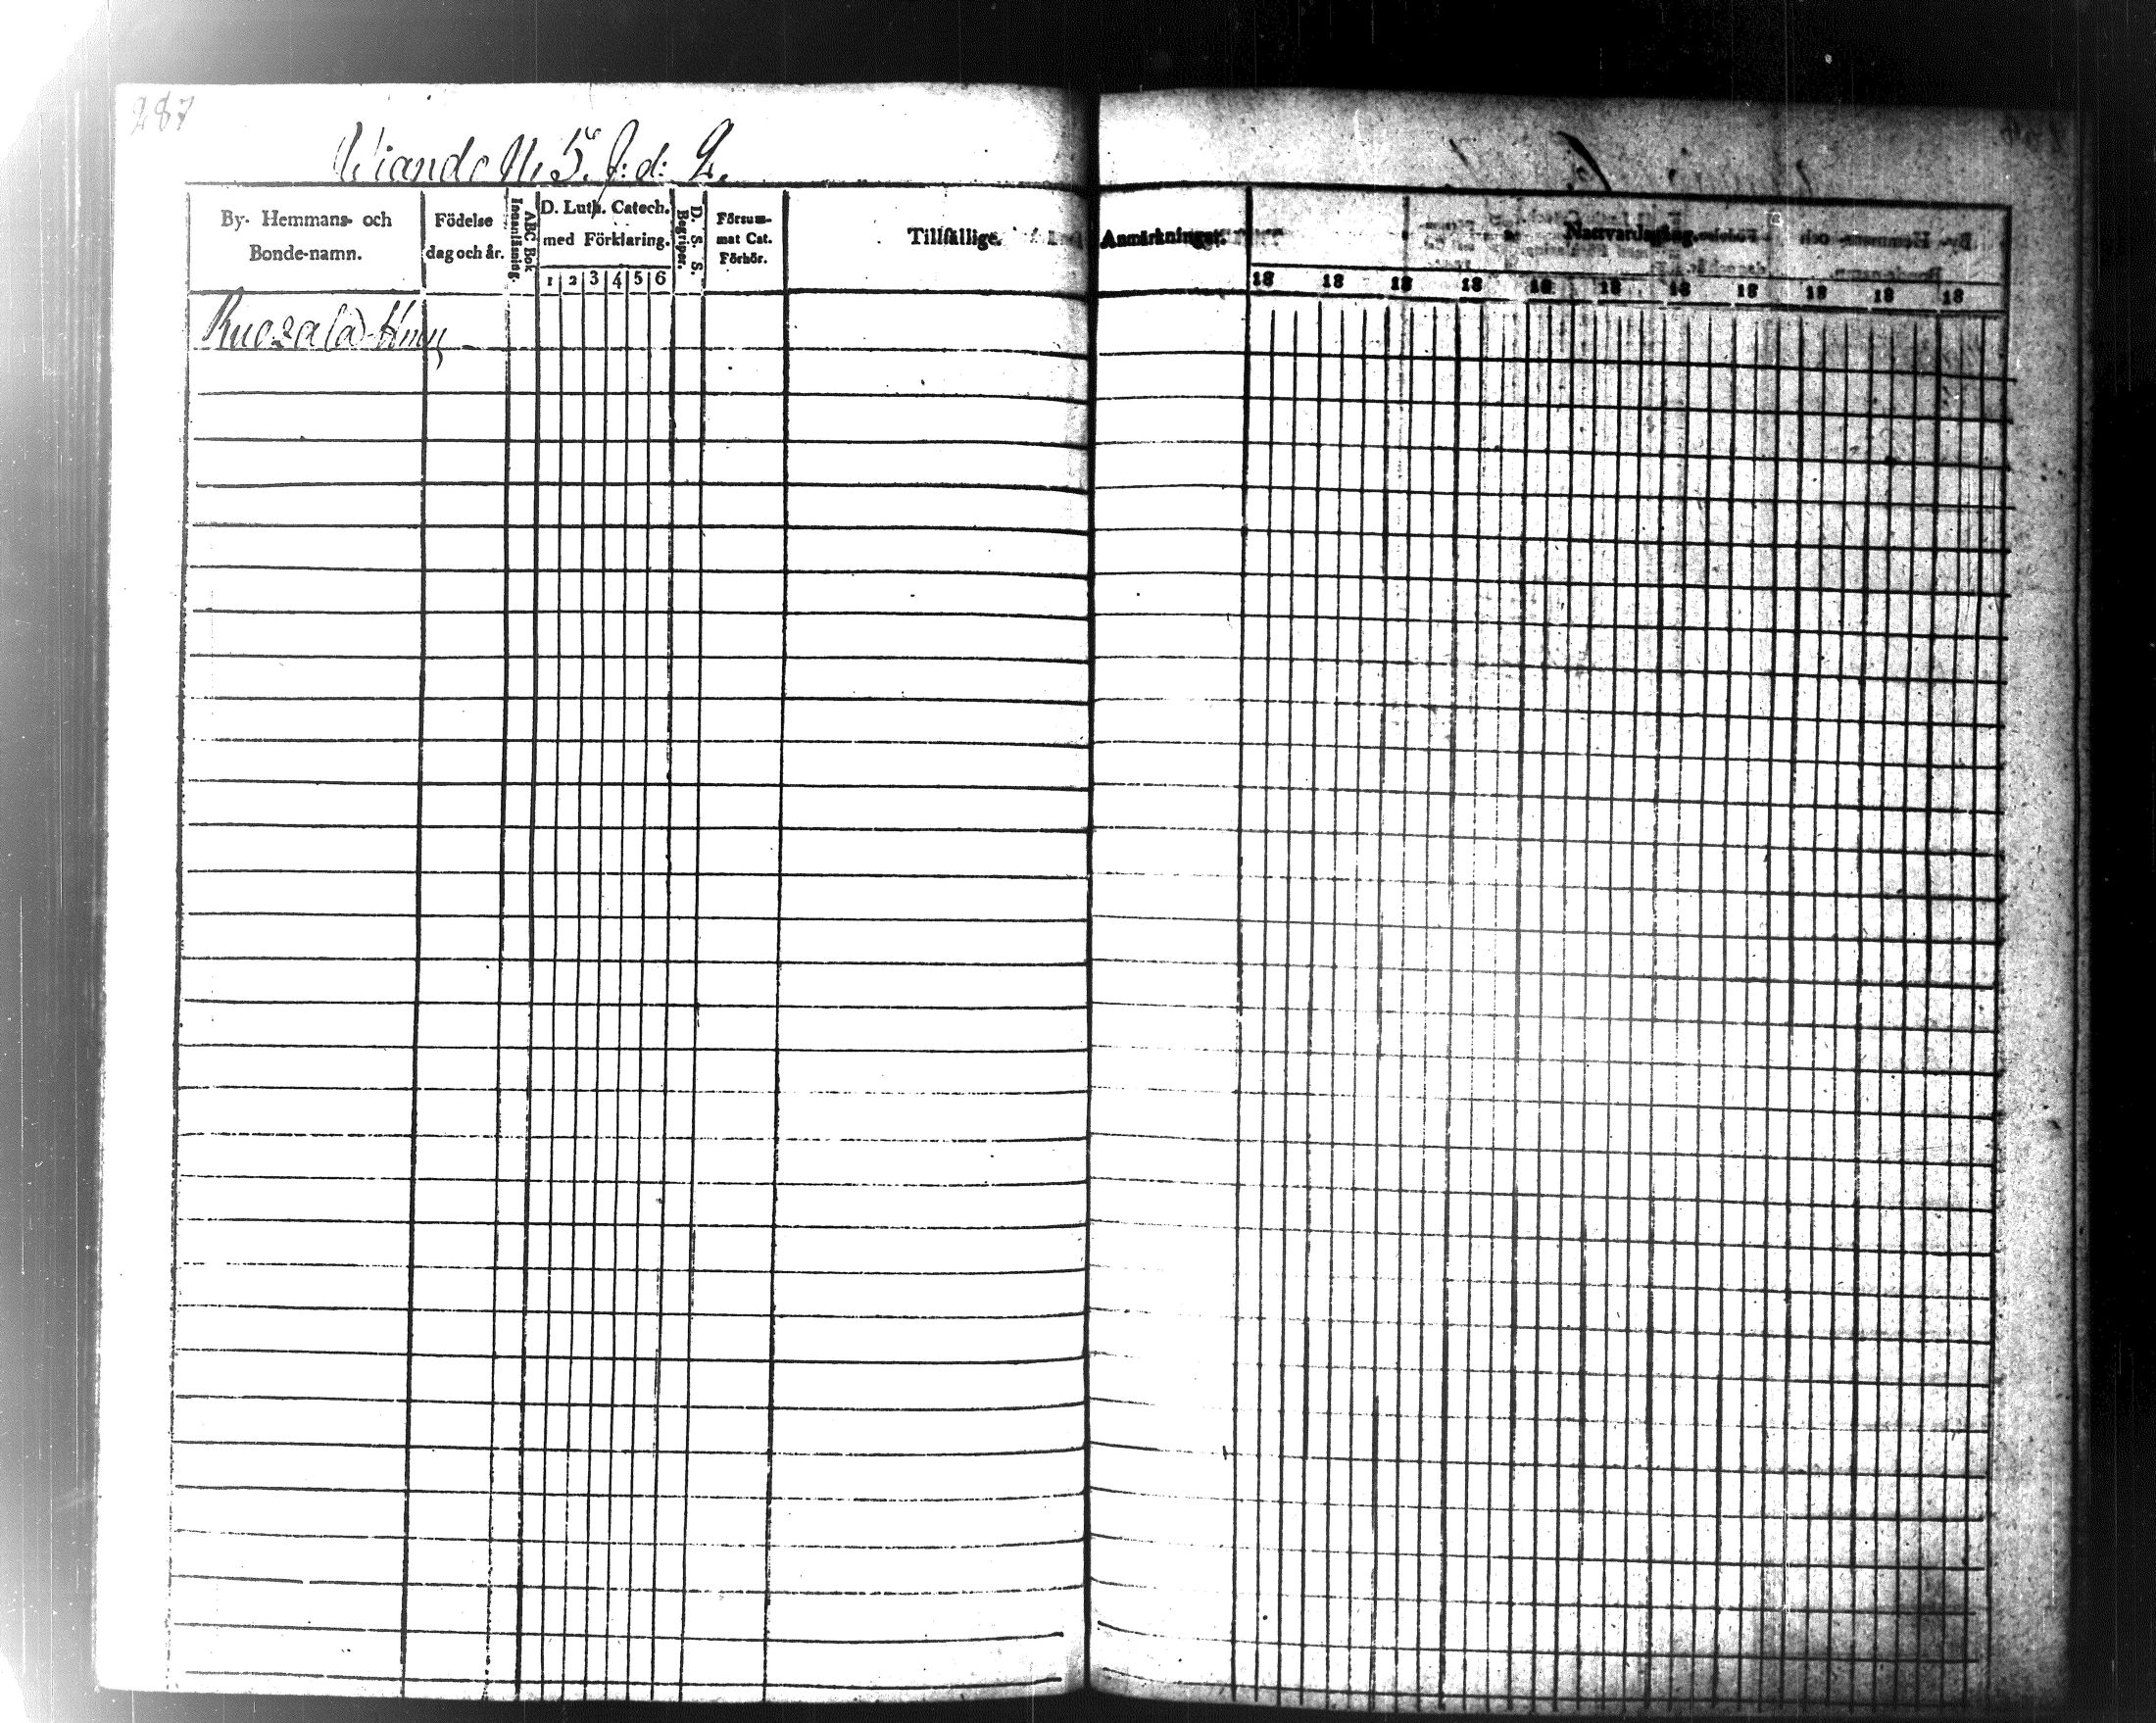 287
Wiando N. 5. f:d: 2.
By- Hemmans- och
Bonde-namn.
Födelse
dag och år.
Innanläsning.
ABC Bok
D. Luth. Catech.
med Förklaring.
1 2 3 4 5 6
Begriper.
D. S. S.
Försum-
mat Cat.
Förhör.
Tillfällige
Anmärkningar.
Nattvardsgång.
18 18 18 18 18 18 18 18 18 18 18